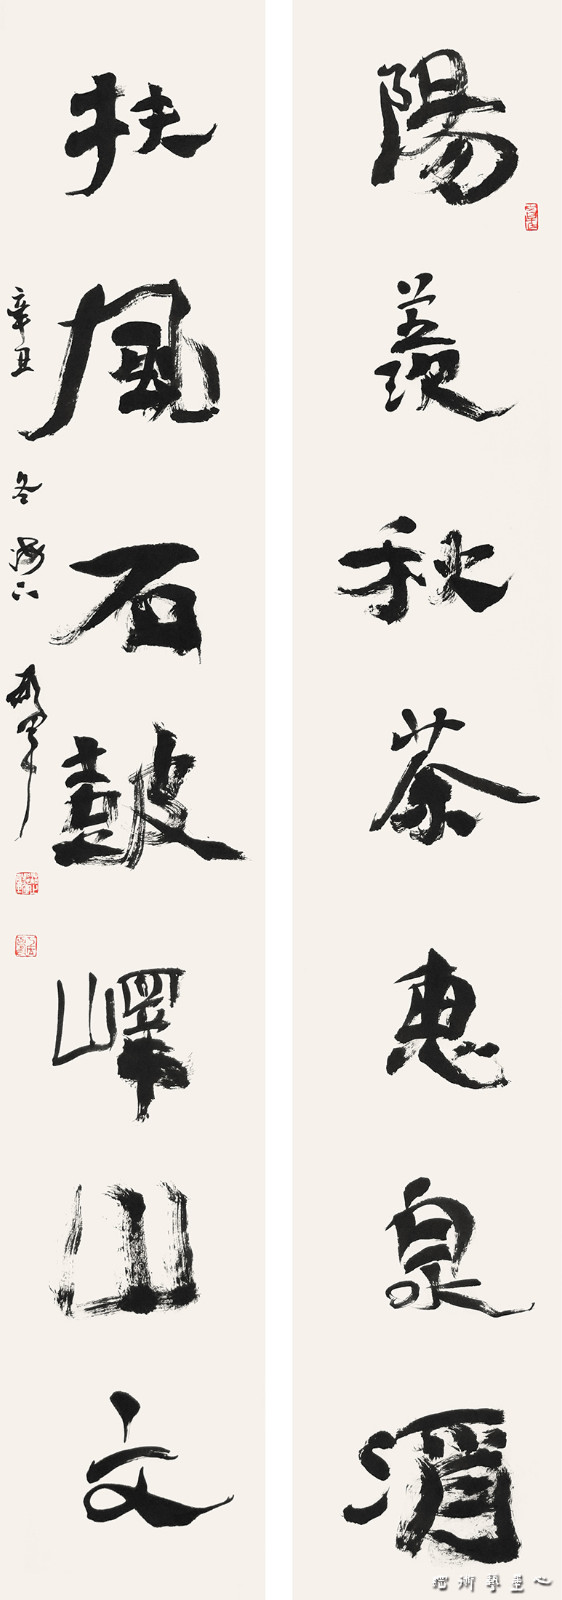 陽羨秋茶惠泉酒
扶風石鼓嶧山文
辛丑冬海上